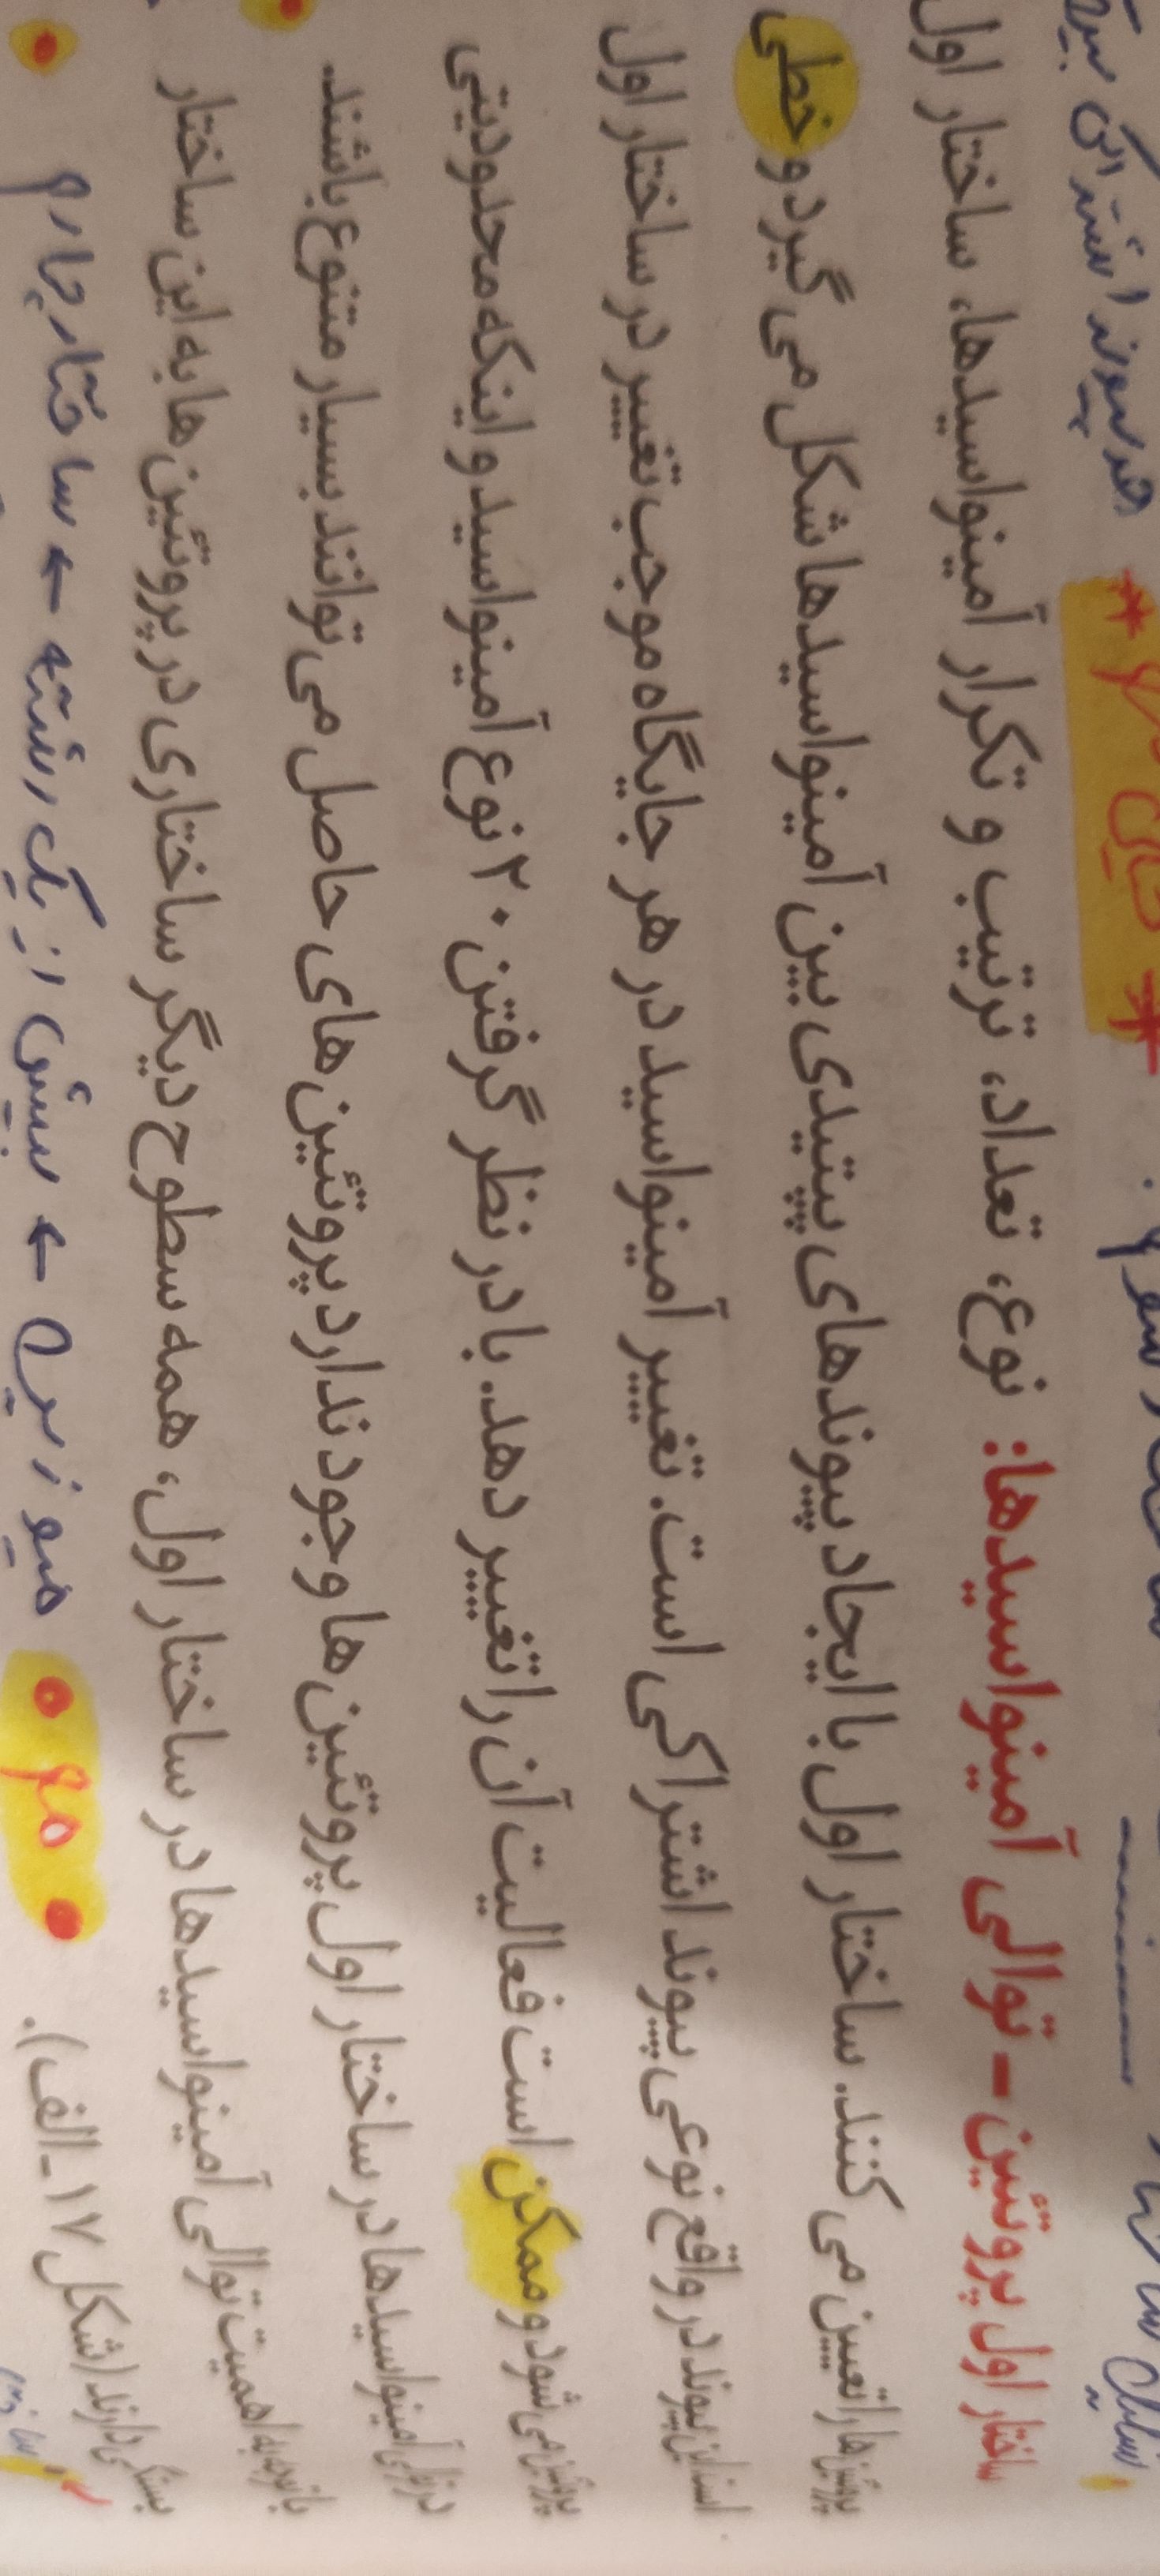 هر پیوند اشتراکی
* خیلی مهم *
ساختار اول پروتئین - توالی آمینواسیدها: نوع، تعداد، ترتیب و تکرار آمینواسیدها، ساختار اول
پروتئین‌ها را تعیین می‌کنند. ساختار اول با ایجاد پیوندهای پپتیدی بین آمینواسیدها شکل می‌گیرد و خطی
است. این پیوند در واقع نوعی پیوند اشتراکی است. تغییر آمینواسید در هر جایگاه موجب تغییر در ساختار اول
پروتئین می‌شود و ممکن است فعالیت آن را تغییر دهد. با در نظر گرفتن ۲۰ نوع آمینواسید و اینکه محدودیتی
در توالی آمینواسیدها در ساختار اول پروتئین‌ها وجود ندارد پروتئین‌های حاصل می‌توانند بسیار متنوع باشند.
با توجه به اهمیت توالی آمینواسیدها در ساختار اول، همه سطوح دیگر ساختاری در پروتئین‌ها به این ساختار
بستگی دارند (شکل ۱۷-الف).
• مهم • از یک رشته ← ساختار چهارم